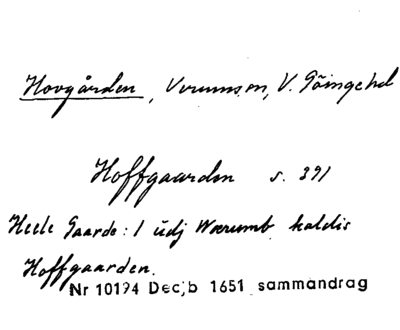 Hovgården, Verums sn, V. Göinge hd
Hoffgaarden s. 391
Heele Gaarde: 1 udj Wærumb kaldis
Hoffgaarden.
Nr 10194 Dec;b 1651 sammandrag